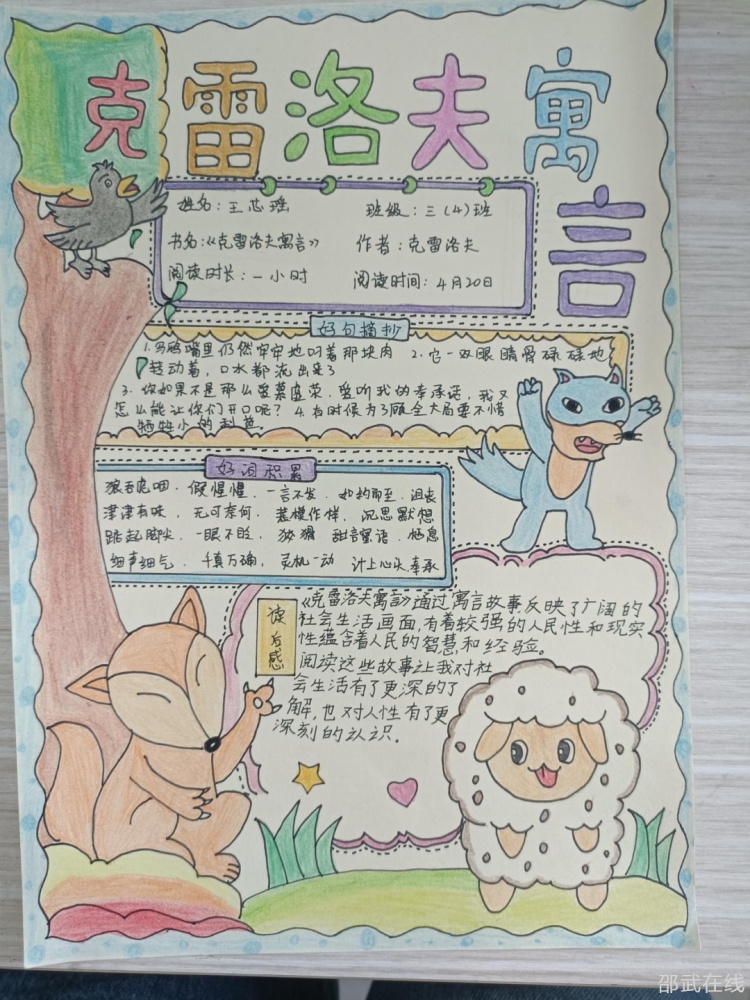 克雷洛夫寓言
姓名:王芯瑶 班级:三(4)班
书名:《克雷洛夫寓言》 作者:克雷洛夫
阅读时长:一小时 阅读时间:4月20日
好句摘抄
1.乌鸦嘴里仍然牢牢地叼着那块肉 2.它一双眼睛骨碌碌地
转动着,口水都流出来了
3.你如果不是那么爱慕虚荣,爱听我的奉承话,我又
怎么能让你们开口呢? 4.有时候为了顾全大局要不惜
牺牲小的利益。
好词积累
狼吞虎咽、假惺惺、一言不发、如约而至、沮丧
津津有味、无可奈何、装模作样、沉思默想
踮起脚尖、一眼不眨、狡猾 甜言蜜语、栖息
细声细气、千真万确、灵机一动 计上心头、奉承
读后感
《克雷洛夫寓言》通过寓言故事,反映了广阔的
社会生活画面,有着较强的人民性和现实
性,蕴含着人民的智慧和经验。
阅读这些故事让我对社
会生活有了更深的了
解,也对人性有了更
深刻的认识。
邵武在线